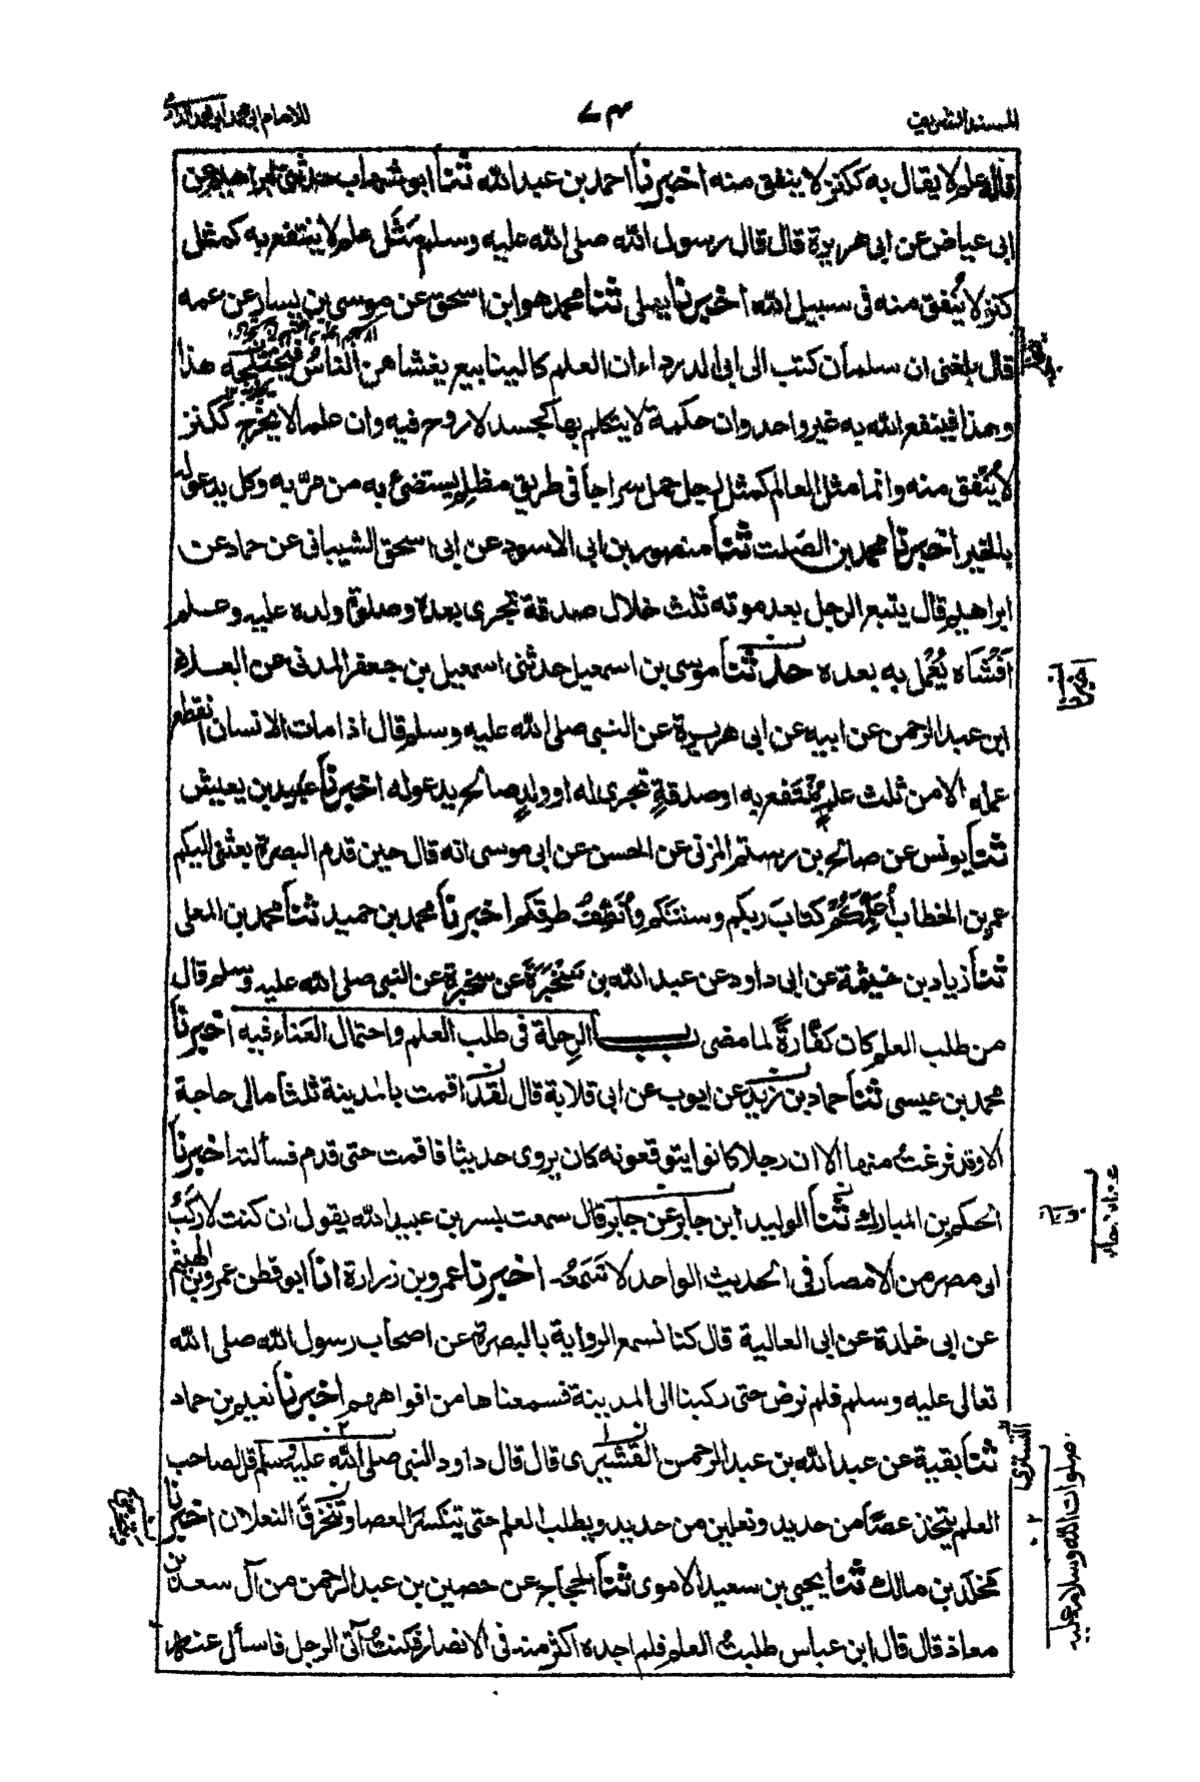 المسند الشريف
للامام ابى محمد
قال علم لا يقال به ككنز لا ينفق منه اخبرنا احمد بن عبد الله ثنا ابو شهاب حدثنى ابراهيم عن
ابى عياض عن ابى هريرة قال قال رسول الله صلى الله عليه وسلم مَثَل علم لا ينتفع به كمثل
كنز لا يُنفق منه فى سبيل الله اخبرنا يعلى ثنا محمد هو ابن اسحق عن موسى بن يسار عن عمه
قال بلغنى ان سلمان كتب الى ابى الدرداء ان العلم كالينابيع يغشاهن الناسُ فيختلجه هذا
وهذا فينفع الله به غير واحد وان حكمة لا يتكلم بها كجسد لا روح فيه وان علما لا يخرج ككنز
لا يُنفق منه وانما مثل العالم كمثل رجل حمل سراجا فى طريق مظلم يستضئ به من مرّ به وكل يدعو له
بالخير اخبرنا محمد بن الصلت ثنا منصور بن ابى الاسود عن ابى اسحق الشيبانى عن حماد عن
ابراهيم قال يتبع الرجل بعد موته ثلث خلال صدقة تجرى بعده وصلوة ولده عليه وعلم
اَفْشَاه يُعْمل به بعده حدثنا موسى بن اسمعيل حدثنى اسمعيل بن جعفر المدنى عن العلاء
ابن عبد الرحمن عن ابيه عن ابى هريرة عن النبى صلى الله عليه وسلم قال اذا مات الانسان انقطع
عمله الا من ثلث علم يُنْتَفع به او صدقةٍ تجرى له او ولدٍ صالح يدعو له اخبرنا عبيد بن يعيش
ثنا يونس عن صالح بن رستم المزنى عن الحسن عن ابى موسى انه قال حين قدم البصرة بعثنى اليكم
عمر بن الخطاب اُعَلِّمُكُمْ كتابَ ربكم وسنتكم واُنَظِّفُ طرقكم اخبرنا محمد بن حميد ثنا محمد بن المعلى
ثنا زياد بن خيثمة عن ابى داود عن عبد الله بن سَخْبَرَةَ عن سخبرة عن النبى صلى الله عليه وسلم قال
من طلب العلم كان كفّارةً لما مضى باب الرِحلة فى طلب العلم واحتمال العَناء فيه اخبرنا
محمد بن عيسى ثنا حماد بن زيد عن ايوب عن ابى قلابة قال لقد اقمت بالمدينة ثلثا مالى حاجة
الا وقد فرغتُ منها الا ان رجلا كانوا يتوقعونه كان يروى حديثا فاقمت حتى قدم فسألته اخبرنا
الحكم بن المبارك ثنا الوليد ابن جابر عن جابر قال سمعت بسر بن عبيد الله يقول ان كنت لاركَبُ
الى مصر من الامصار فى الحديث الواحد لاَسْمَعُه اخبرنا عمرو بن زرارة انا ابو قطن عمرو بن الهيثم
عن ابى خلدة عن ابى العالية قال كنا نسمع الرواية بالبصرة عن اصحاب رسول الله صلى الله
تعالى عليه وسلم فلم نرض حتى ركبنا الى المدينة فسمعناها من افواههم اخبرنا نعيم بن حماد
ثنا بقية عن عبد الله بن عبد الرحمن القشيرى قال قال داود النبى صلى الله عليه وسلم قل لصاحب
العلم يتخذ عصًا من حديد ونعلين من حديد ويطلب العلم حتى تنكسر العصا وتنخرقَ النعلان اخبرنا
مخلد بن مالك ثنا يحيى بن سعيد الاموى ثنا الحجاج عن حصين بن عبد الرحمن من آل سعد بن
معاذ قال قال ابن عباس طلبتُ العلم فلم اجده اكثر منه فى الانصار فكنتُ آتى الرجل فاسأل عنه
اخبرنا
التسترى
صلوات الله وسلامه عليه